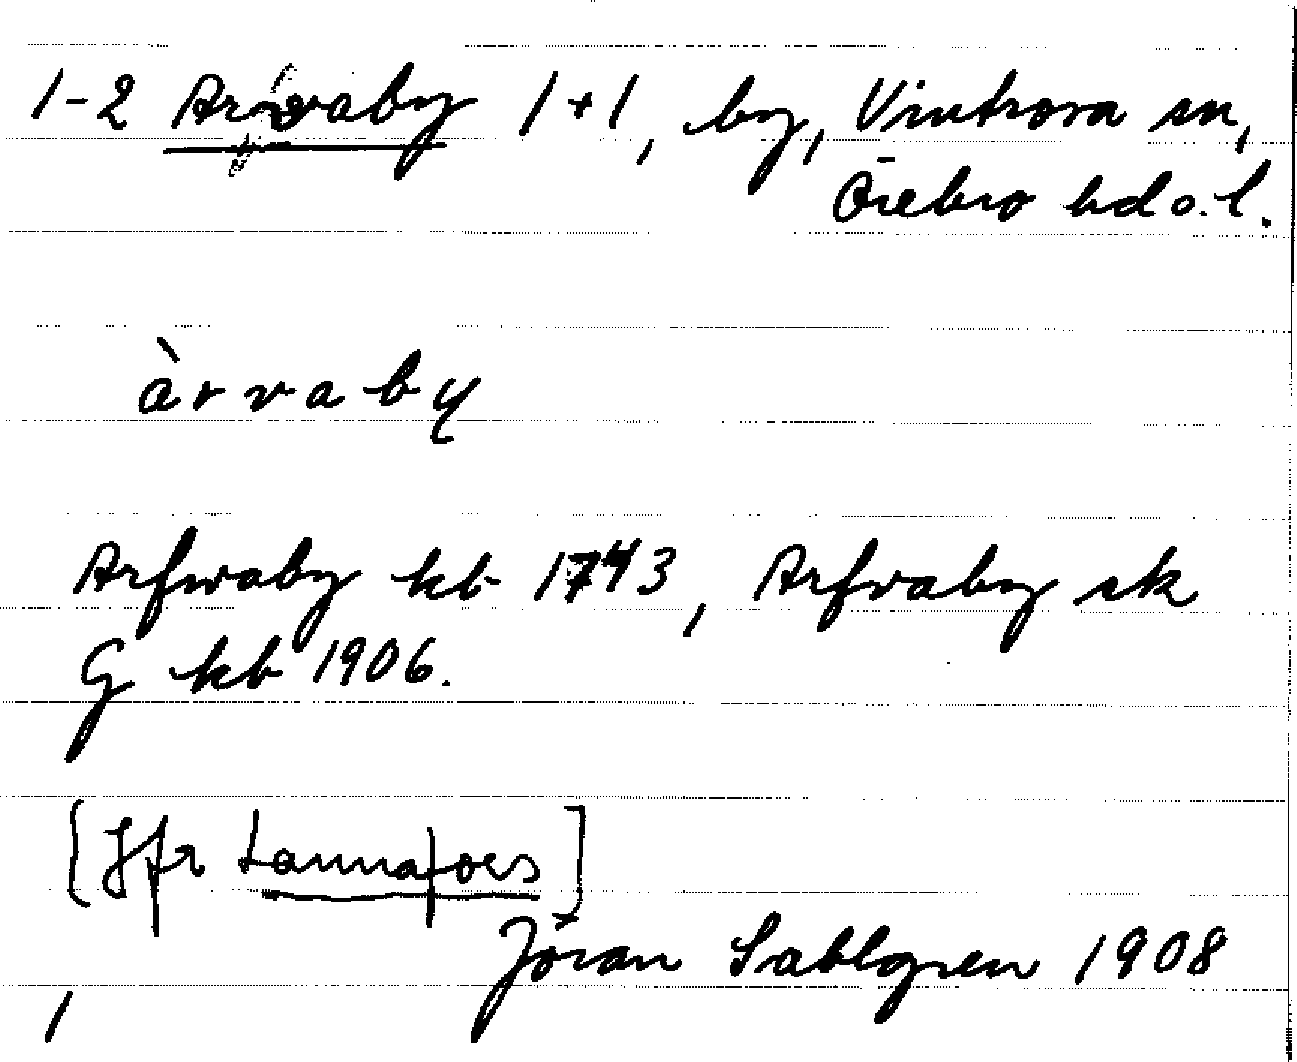 1-2 Arvaby 1+1, by, Vintrosa sn,
Örebro hd o. l.
àrvaby
Arfwaby kb 1743, Arfvaby sk
G kb 1906.
[Jfr Lannafors]
Jöran Sahlgren 1908
1